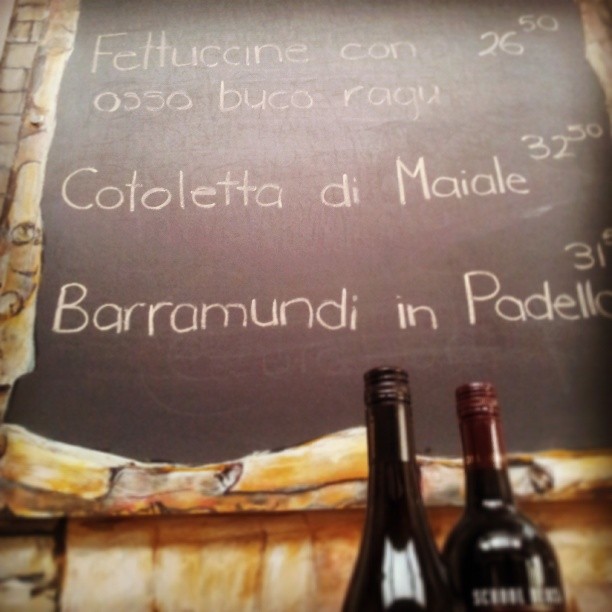 Fettuccine con 26 50
osso buco ragu
Cotoletta di Maiale 32 50
Barramundi in Padella 31